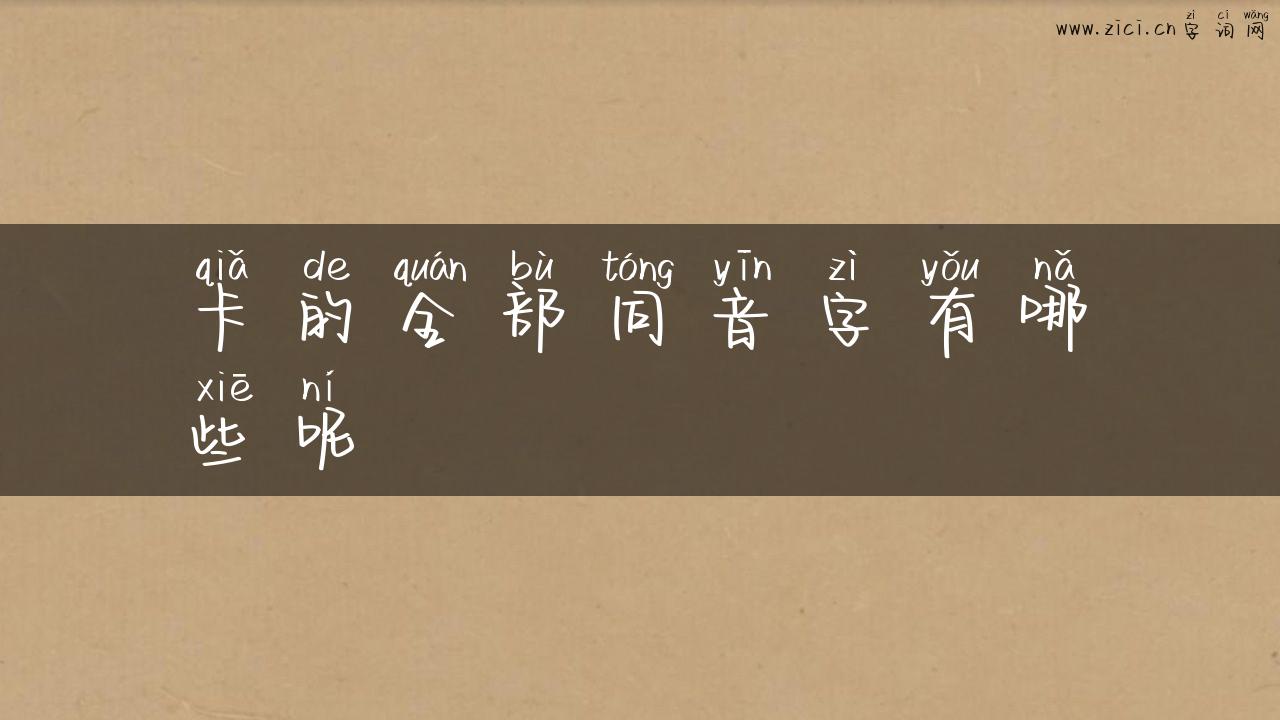 zì cí wǎng
www.zici.cn 字 词 网
qiǎ de quán bù tóng yīn zì yǒu nǎ
卡 的 全 部 同 音 字 有 哪
xiē ní
些 呢